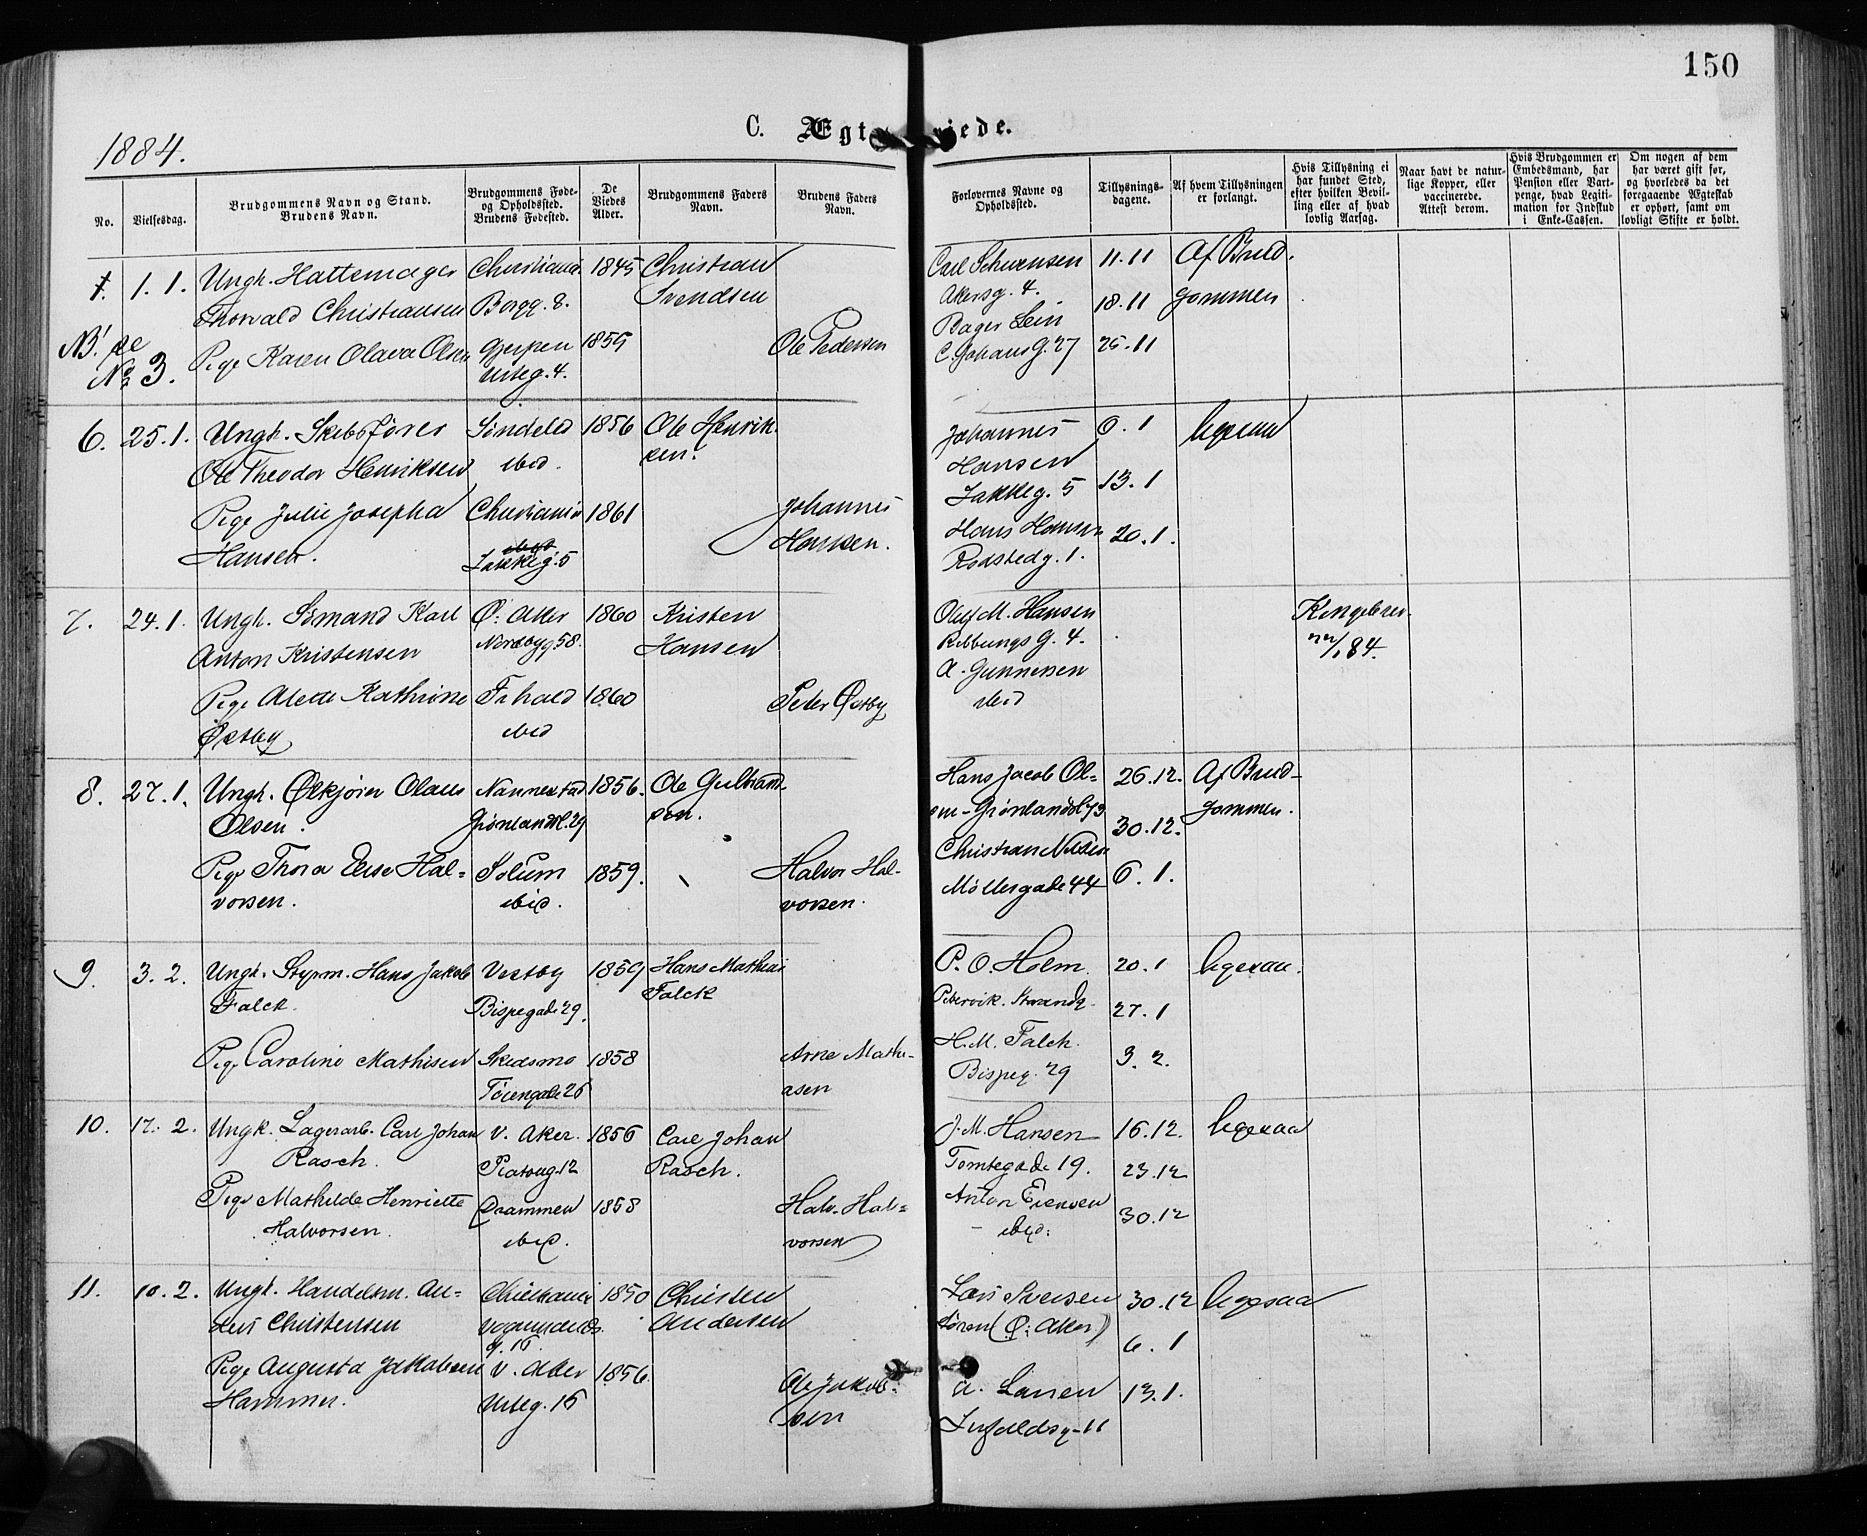 150
C. Ægt viede.
1884.
No.
Vielsesdag.
Brudgommens Navn og Stand.
Brudens Navn.
Brudgommens Føde-
og Opholdssted.
Brudens Fødested.
De
Viedes
Alder.
Brudgommens Faders
Navn.
Brudens Faders
Navn.
Forlovernes Navne og
Opholdssted.
Tillysnings-
dagene.
Af hvem Tillysningen
er forlangt.
Hvis Tillysning ei
har fundet Sted,
efter hvilken Bevil-
ling eller af hvad
lovlig Aarsag.
Naar havt de natur-
lige Kopper, eller
vaccinerede.
Attest derom.
Hvis Brudgommen er
Embedsmand, har
Pension eller Vart-
penge, hvad Legiti-
mation for Indskud
i Enke-Cassen.
Om nogen af dem
har været gift før,
og hvorledes da det
foregaaende Ægteskab
er ophørt, samt om
lovligt Skifte er holdt.
1. 1. 1. Ungk. Hattemager Christiania 1845 Christian Carl 11.11 Af Brud-
Thorvald Christiansen Borgg. 8. Svendsen Akersg. 4. 18.11 gommen
NB! se Pige Karen Olava Olsen Gjerpen 1855 Ole Pedersen Bager Lein
No 3. Urteg. 4. C. Johans G. 27 25.11
6. 25.1. Ungk. Skibsfører Søndeled 1856 Ole Henrik- Johannes 6.1 ligesaa
Ole Theodor Henriksen ibid. sen. Hansen
Lakkeg. 5 13.1
Pige Julie Josepha Christiania 1861 Johannes Hans Hansen 20.1.
Hansen. ibid Lakkeg. 5 Hansen. Rodstedg. 1.
7. 24.1. Ungk. Sømand Karl Ø. Aker 1860 Kristen Oluf M. Hansen Kongebrev
Anton Kristensen Nordbyg 58. Hansen Ribbungs G. 4. 22/1 84.
A. Gunnersen
Pige Kathrine Frhald 1860 Peter Østby ibid
Østby ibid
8. 27.1. Ungk. Ølkjører Olaus Nannestad 1856. Ole Gulbrand- Hans Jacob Ol- 26.12. Af Brud-
Olsen. Grønlandsl. 29 sen. sen - Grønlandsl 73 30.12. gommen.
Christian Nilsen
Pige Thora Elise Hal- Solum 1859. Halvor Hal- Møllergade 44 6.1.
vorsen. ibid. vorsen.
9. 3.2. Ungk. Styrm. Hans Jakob Vestby 1859 Hans Mathias P. O. Holm 20.1 ligesaa.
Falck. Bispegade 29. Falck Pibervik. 27.1
Pige Caroline Mathisen Skedsmo 1858 Arne Mathi- H. M. Falck. 3.2.
Tøiengade 26 asen Bispeg. 29
10. 17. 2. Ungk. Lagerarb. Carl Johan V. Aker. 1856 Carl Johan J. M. Hansen 16.12. ligesaa
Rasch. Platoug. 12 Rasch. Tomtegade 19. 23.12
Pige Mathilde Henriette Drammen 1858 Halv. Hal- Anton 30.12
Halvorsen. ibid. vorsen ibid.
11. 10. 2. Ungk. Handelsm. An- Christiania 1850 Christen Lars 30.12 ligesaa
ders Christensen g. 15. Andersen (Ø. Aker) 6.1
Pige Augusta Jakobsen V. Aker 1856. Ole Jakob- A. Larsen 13.1.
Hammer. Urteg. 15 sen 11